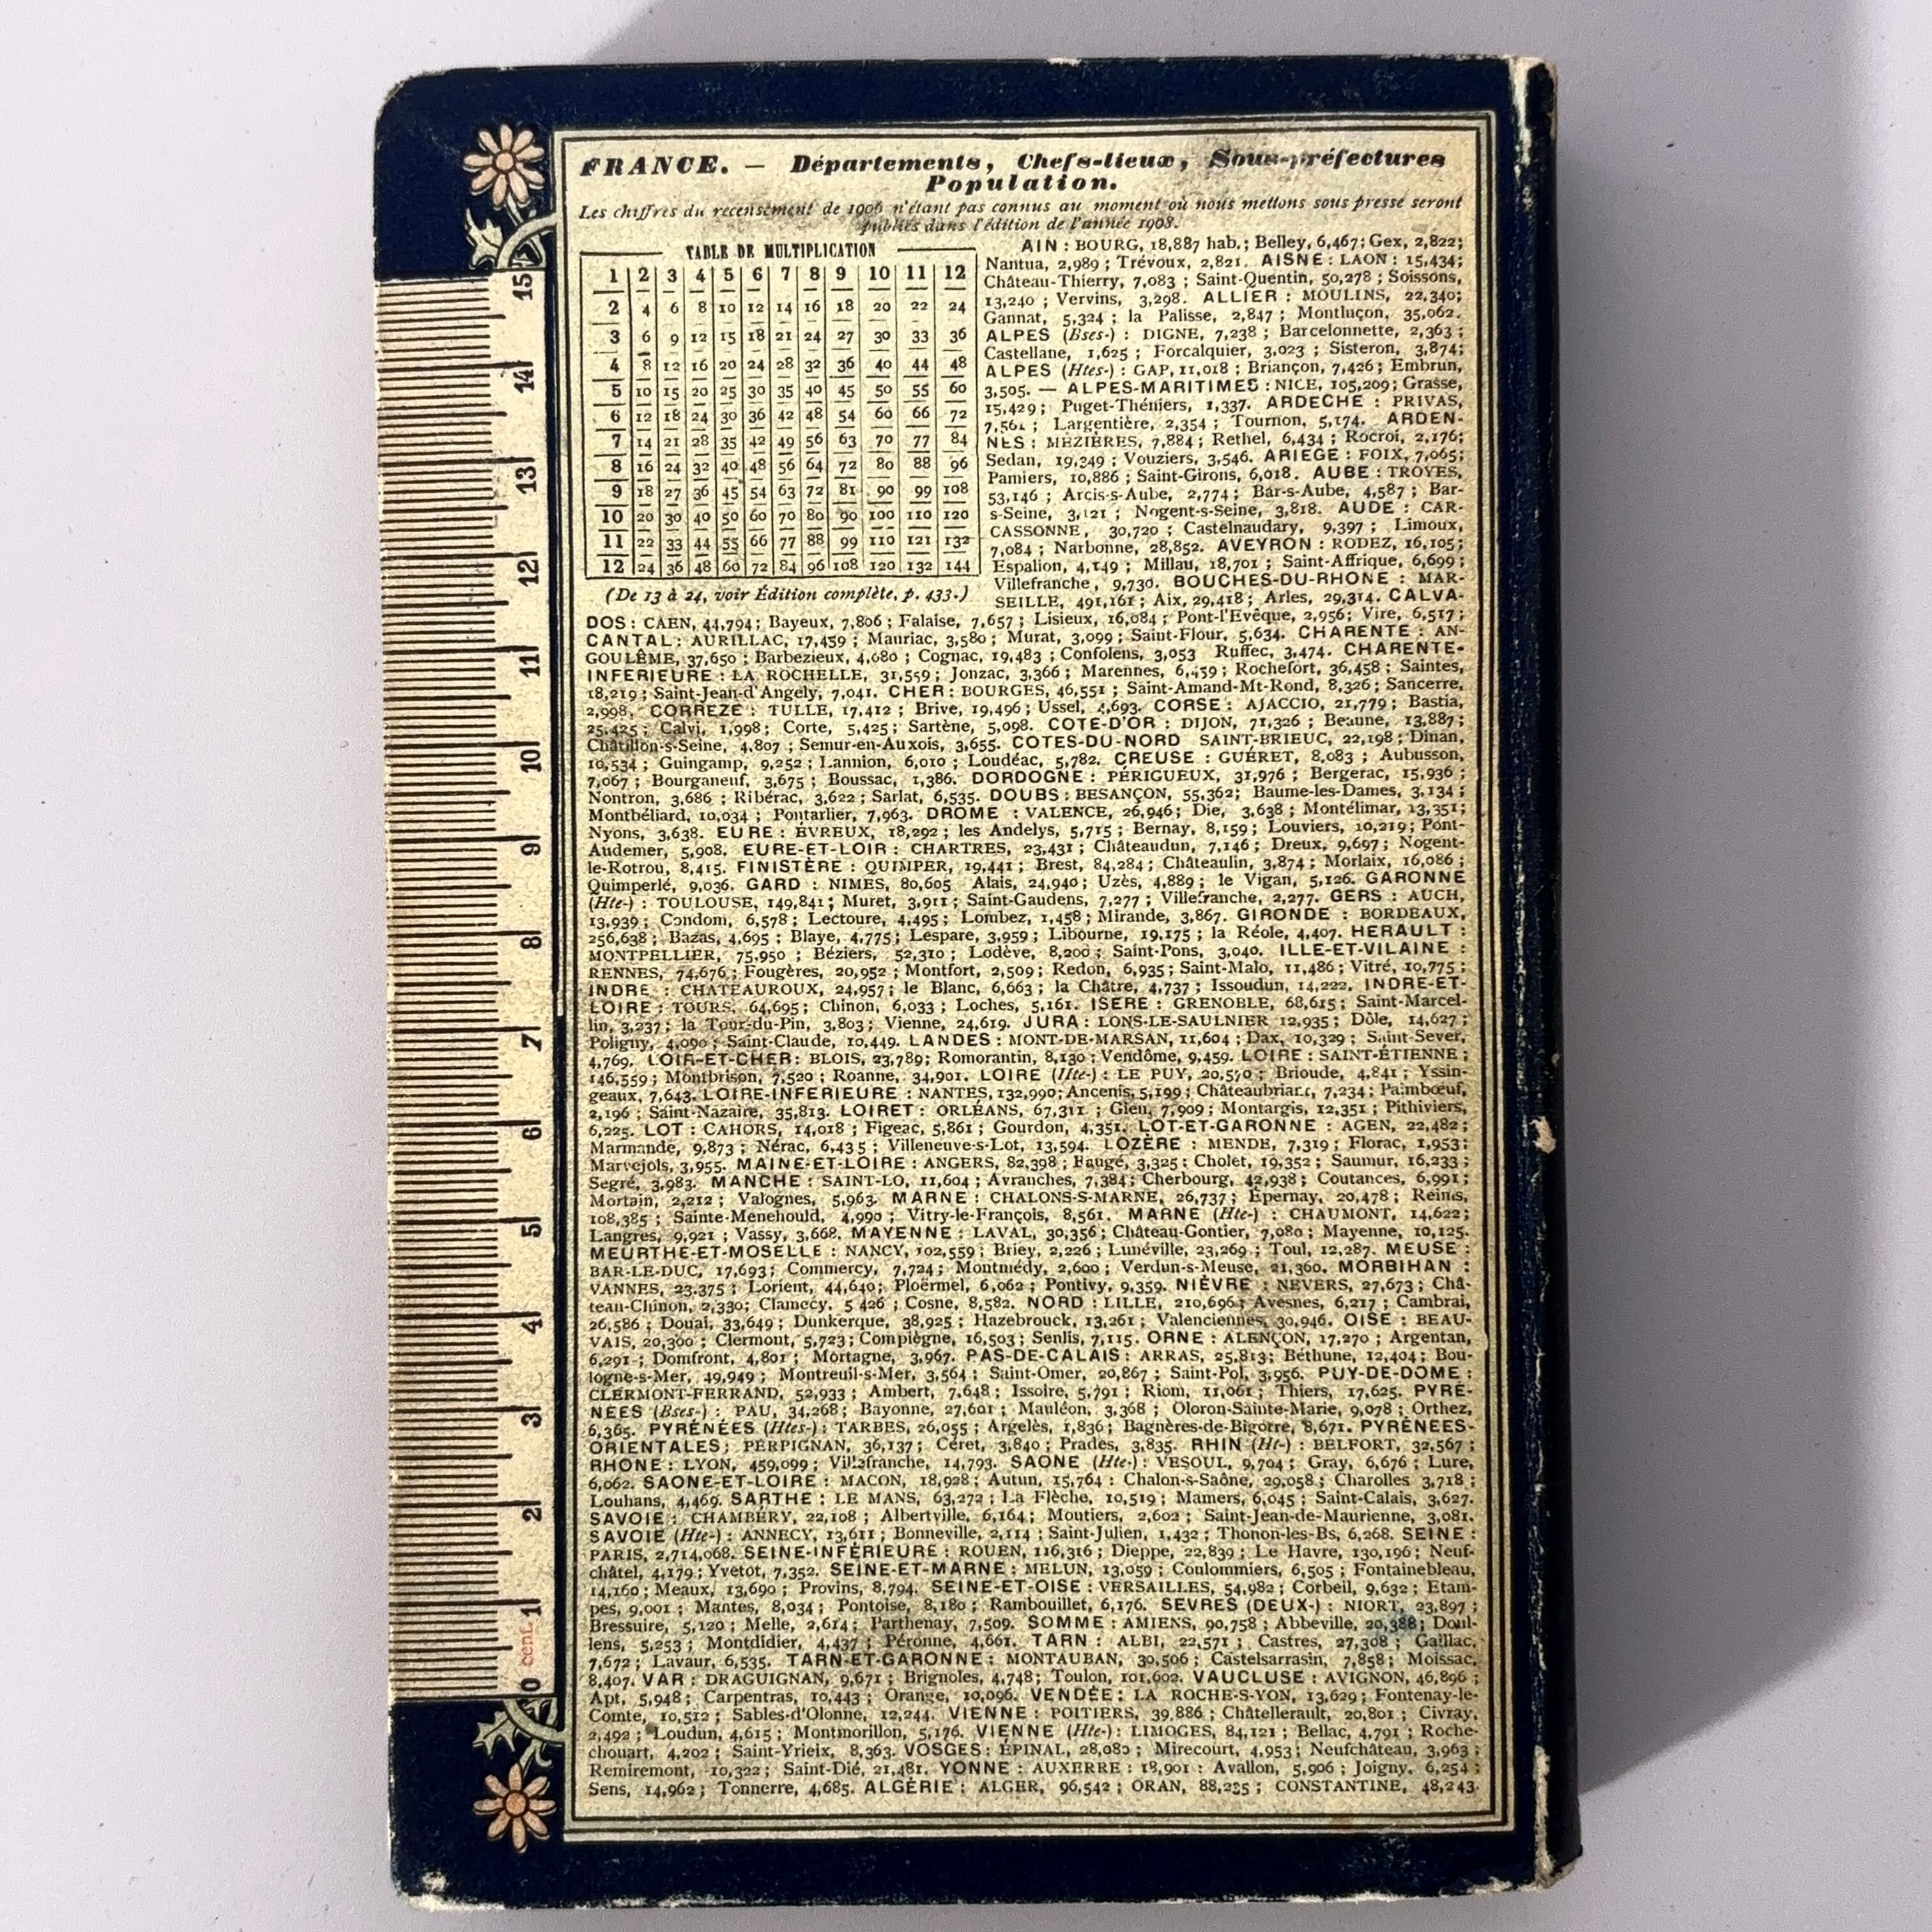 FRANCE. — Départements, Chefs-lieux, Sous-préfectures
Population.
Les chiffres du recensement de 1906 n'étant pas connus au moment où nous mettons sous presse seront
publiés dans l'édition de l'année 1908.
TABLE DE MULTIPLICATION
1 2 3 4 5 6 7 8 9 10 11 12
2 4 6 8 10 12 14 16 18 20 22 24
3 6 9 12 15 18 21 24 27 30 33 36
4 8 12 16 20 24 28 32 36 40 44 48
5 10 15 20 25 30 35 40 45 50 55 60
6 12 18 24 30 36 42 48 54 60 66 72
7 14 21 28 35 42 49 56 63 70 77 84
8 16 24 32 40 48 56 64 72 80 88 96
9 18 27 36 45 54 63 72 81 90 99 108
10 20 30 40 50 60 70 80 90 100 110 120
11 22 33 44 55 66 77 88 99 110 121 132
12 24 36 48 60 72 84 96 108 120 132 144
(De 13 à 24, voir Édition complète, p. 433.)
AIN : BOURG, 18,887 hab.; Belley, 6,467; Gex, 2,822;
Nantua, 2,989 ; Trévoux, 2,821. AISNE : LAON : 15,434;
Château-Thierry, 7,083 ; Saint-Quentin, 50,278 ; Soissons,
13,240 ; Vervins, 3,298. ALLIER : MOULINS, 22,340;
Gannat, 5,324 ; la Palisse, 2,847 ; Montluçon, 35,062.
ALPES (Bses-) : DIGNE, 7,238 ; Barcelonnette, 2,363 ;
Castellane, 1,625 ; Forcalquier, 3,023 ; Sisteron, 3,874;
ALPES (Htes-) : GAP, 11,018 ; Briançon, 7,426; Embrun,
3,505. — ALPES-MARITIMES : NICE, 105,209; Grasse,
15,429; Puget-Théniers, 1,337. ARDECHE : PRIVAS,
7,561 ; Largentière, 2,354 ; Tournon, 5,174. ARDEN-
NES : MÉZIÈRES, 7,884 ; Rethel, 6,434 ; Rocroi, 2,176;
Sedan, 19,349 ; Vouziers, 3,546. ARIEGE : FOIX, 7,065;
Pamiers, 10,886 ; Saint-Girons, 6,018. AUBE : TROYES,
53,146 ; Arcis-s-Aube, 2,774 ; Bar-s-Aube, 4,587 ; Bar-
s-Seine, 3,121 ; Nogent-s-Seine, 3,818. AUDE : CAR-
CASSONNE, 30,720 ; Castelnaudary, 9,397 ; Limoux,
7,084 ; Narbonne, 28,852. AVEYRON : RODEZ, 16,105;
Espalion, 4,149 ; Millau, 18,701 ; Saint-Affrique, 6,699 ;
Villefranche, 9,730. BOUCHES-DU-RHONE : MAR-
SEILLE, 491,161; Aix, 29,418 ; Arles, 29,314. CALVA-
DOS : CAEN, 44,794; Bayeux, 7,806 ; Falaise, 7,657 ; Lisieux, 16,084 ; Pont-l'Evêque, 2,956; Vire, 6,517 ;
CANTAL : AURILLAC, 17,459 ; Mauriac, 3,580 ; Murat, 3,099 ; Saint-Flour, 5,634. CHARENTE : AN-
GOULÊME, 37,650 ; Barbezieux, 4,080 ; Cognac, 19,483 ; Confolens, 3,053 Ruffec, 3,474. CHARENTE-
INFERIEURE : LA ROCHELLE, 31,559 ; Jonzac, 3,366 ; Marennes, 6,459 ; Rochefort, 36,458 ; Saintes,
18,219 ; Saint-Jean-d'Angely, 7,041. CHER : BOURGES, 46,551 ; Saint-Amand-Mt-Rond, 8,326 ; Sancerre,
2,998, CORREZE : TULLE, 17,412 ; Brive, 19,496 ; Ussel, 4,693. CORSE : AJACCIO, 21,779 ; Bastia,
25,425 ; Calvi, 1,998 ; Corte, 5,425 ; Sartène, 5,098. COTE-D'OR : DIJON, 71,326 ; Beaune, 13,887 ;
Châtillon-s-Seine, 4,807 ; Semur-en-Auxois, 3,655. COTES-DU-NORD SAINT-BRIEUC, 22,198 ; Dinan,
10,534 ; Guingamp, 9,252 ; Lannion, 6,010 ; Loudéac, 5,782. CREUSE : GUÉRET, 8,083 ; Aubusson,
7,067 ; Bourganeuf, 3,675 ; Boussac, 1,386. DORDOGNE : PÉRIGUEUX, 31,976 ; Bergerac, 15,936 ;
Nontron, 3,686 ; Ribérac, 3,622 ; Sarlat, 6,535. DOUBS : BESANÇON, 55,362; Baume-les-Dames, 3,134 ;
Montbéliard, 10,034 ; Pontarlier, 7,963. DROME : VALENCE, 26,946; Die, 3,638 ; Montélimar, 13,351;
Nyons, 3,638. EURE : ÉVREUX, 18,292 ; les Andelys, 5,715 ; Bernay, 8,159 ; Louviers, 10,219 ; Pont-
Audemer, 5,908. EURE-ET-LOIR : CHARTRES, 23,431 ; Châteaudun, 7,146 ; Dreux, 9,697 ; Nogent-
le-Rotrou, 8,415. FINISTÈRE : QUIMPER, 19,441 ; Brest, 84,284 ; Châteaulin, 3,874 ; Morlaix, 16,086 ;
Quimperlé, 9,036. GARD : NIMES, 80,605 Alais, 24,940 ; Uzès, 4,889 ; le Vigan, 5,126. GARONNE
(Hte-) : TOULOUSE, 149,841 ; Muret, 3,911 ; Saint-Gaudens, 7,277 ; Villefranche, 2,277. GERS : AUCH,
13,939 ; Condom, 6,578 ; Lectoure, 4,495 ; Lombez, 1,458 ; Mirande, 3,867. GIRONDE : BORDEAUX,
256,638 ; Bazas, 4,695 ; Blaye, 4,775 ; Lespare, 3,959 ; Libourne, 19,175 ; la Réole, 4,407. HERAULT :
MONTPELLIER, 75,950 ; Béziers, 52,310 ; Lodève, 8,200 ; Saint-Pons, 3,040. ILLE-ET-VILAINE :
RENNES, 74,676 ; Fougères, 20,952 ; Montfort, 2,509 ; Redon, 6,935 ; Saint-Malo, 11,486 ; Vitré, 10,775 ;
INDRE : CHATEAUROUX, 24,957 ; le Blanc, 6,663 ; la Châtre, 4,737 ; Issoudun, 14,222. INDRE-ET-
LOIRE : TOURS, 64,695 ; Chinon, 6,033 ; Loches, 5,161. ISERE : GRENOBLE, 68,615 ; Saint-Marcel-
lin, 3,237 ; la Tour-du-Pin, 3,803 ; Vienne, 24,619. JURA : LONS-LE-SAULNIER 12,935 ; Dôle, 14,627 ;
Poligny, 4,090 ; Saint-Claude, 10,449. LANDES : MONT-DE-MARSAN, 11,604 ; Dax, 10,329 ; Saint-Sever,
4,769. LOIR-ET-CHER : BLOIS, 23,789; Romorantin, 8,130 ; Vendôme, 9,459. LOIRE : SAINT-ÉTIENNE ;
146,559 ; Montbrison, 7,520 ; Roanne, 34,901. LOIRE (Hte-) : LE PUY, ; Brioude, 4,841 ; Yssin-
geaux, 7,643. LOIRE-INFERIEURE : NANTES, 132,990; Ancenis, 5,199 ; Châteaubriant, 7,234 ; Paimbœuf,
2,196 ; Saint-Nazaire, 35,813. LOIRET : ORLÉANS, 67,311 ; Gien, 7,909 ; Montargis, 12,351 ; Pithiviers,
6,225. LOT : CAHORS, 14,018 ; Figeac, 5,861 ; Gourdon, 4,351. LOT-ET-GARONNE : AGEN, 22,482 ;
Marmande, 9,873 ; Nérac, 6,435 ; Villeneuve-s-Lot, 13,594. LOZÈRE : MENDE, 7,319 ; Florac, 1,953;
Marvejols, 3,955. MAINE-ET-LOIRE : ANGERS, 82,398 ; Baugé, 3,325 ; Cholet, 19,352 ; Saumur, 16,233 ;
Segré, 3,983. MANCHE : SAINT-LO, 11,604 ; Avranches, 7,384; Cherbourg, 42,938 ; Coutances, 6,991 ;
Mortain, 2,212 ; Valognes, 5,963. MARNE : CHALONS-S-MARNE, 26,737 ; Épernay, 20,478 ; Reims,
108,385 ; Sainte-Menehould, 4,990 ; Vitry-le-François, 8,561. MARNE (Hte-) : CHAUMONT, 14,622 ;
Langres, 9,921 ; Vassy, 3,668. MAYENNE : LAVAL, 30,356 ; Château-Gontier, 7,080 ; Mayenne, 10,125.
MEURTHE-ET-MOSELLE : NANCY, 102,559 ; Briey, 2,226 ; Lunéville, 23,269 ; Toul, 12,287. MEUSE :
BAR-LE-DUC, 17,693 ; Commercy, 7,724 ; Montmédy, 2,600 ; Verdun-s-Meuse, 21,360. MORBIHAN :
VANNES, 23,375 ; Lorient, 44,640; Ploërmel, 6,062 ; Pontivy, 9,359. NIÈVRE : NEVERS, 27,673 ; Châ-
teau-Chinon, 2,330; Clamecy, 5 426 ; Cosne, 8,582. NORD : LILLE, 210,696 ; Avesnes, 6,217 ; Cambrai,
26,586 ; Douai, 33,649 ; Dunkerque, 38,925 ; Hazebrouck, 13,261 ; Valenciennes, 30,946. OISE : BEAU-
VAIS, 20,300 ; Clermont, 5,723 ; Compiègne, 16,503 ; Senlis, 7,115. ORNE : ALENÇON, 17,270 ; Argentan,
6,291 ; Domfront, 4,801 ; Mortagne, 3,967. PAS-DE-CALAIS : ARRAS, 25,813; Béthune, 12,404 ; Bou-
logne-s-Mer, 49,949 ; Montreuil-s-Mer, 3,564 ; Saint-Omer, 20,867 ; Saint-Pol, 3,956. PUY-DE-DOME :
CLERMONT-FERRAND, 52,933 ; Ambert, 7,648 ; Issoire, 5,791 ; Riom, 11,061 ; Thiers, 17,625. PYRÉ-
NÉES (Bses-) : PAU, 34,268 ; Bayonne, 27,601 ; Mauléon, 3,368 ; Oloron-Sainte-Marie, 9,078 ; Orthez,
6,365. PYRÉNÉES (Htes-) : TARBES, 26,055 ; Argelès, 1,836 ; Bagnères-de-Bigorre, 8,671. PYRÈNEES-
ORIENTALES ; PERPIGNAN, 36,137 ; Céret, 3,840 ; Prades, 3,835. RHIN (Ht-) : BELFORT, 32,567 ;
RHONE : LYON, 459,099 ; Villefranche, 14,793. SAONE (Hte-) : VESOUL, 9,704 ; Gray, 6,676 ; Lure,
6,062. SAONE-ET-LOIRE : MACON, 18,928 ; Autun, 15,764 ; Chalon-s-Saône, 29,058 ; Charolles 3,718 ;
Louhans, 4,469. SARTHE : LE MANS, 63,272 ; La Flèche, 10,519 ; Mamers, 6,045 ; Saint-Calais, 3,627.
SAVOIE : CHAMBÉRY, 22,108 ; Albertville, 6,164 ; Moutiers, 2,602 ; Saint-Jean-de-Maurienne, 3,081.
SAVOIE (Hte-) : ANNECY, 13,611 ; Bonneville, 2,114 ; Saint-Julien, 1,432 ; Thonon-les-Bs, 6,268. SEINE :
PARIS, 2,714,068. SEINE-INFÉRIEURE : ROUEN, 116,316 ; Dieppe, 22,839 ; Le Havre, 130,196 ; Neuf-
châtel, 4,179 ; Yvetot, 7,352. SEINE-ET-MARNE : MELUN, 13,059 ; Coulommiers, 6,505 ; Fontainebleau,
14,160 ; Meaux, 13,690 ; Provins, 8,794. SEINE-ET-OISE : VERSAILLES, 54,982 ; Corbeil, 9,632 ; Etam-
pes, 9,001 ; Mantes, 8,034 ; Pontoise, 8,180 ; Rambouillet, 6,176. SEVRES (DEUX-) : NIORT, 23,897 ;
Bressuire, 5,120 ; Melle, 2,614 ; Parthenay, 7,509. SOMME : AMIENS, 90,758 ; Abbeville, 20,388 ; Doul-
lens, 5,253 ; Montdidier, 4,437 ; Péronne, 4,661. TARN : ALBI, 22,571 ; Castres, 27,308 ; Gaillac,
7,672 ; Lavaur, 6,535. TARN-ET-GARONNE : MONTAUBAN, 30,506 ; Castelsarrasin, 7,858 ; Moissac,
8,407. VAR : DRAGUIGNAN, 9,671 ; Brignoles, 4,748; Toulon, 101,602. VAUCLUSE : AVIGNON, 46,896 ;
Apt, 5,948 ; Carpentras, 10,443 ; Orange, 10,096. VENDÉE : LA ROCHE-S-YON, 13,629 ; Fontenay-le-
Comte, 10,512 ; Sables-d'Olonne, 12,244. VIENNE : POITIERS, 39,886 ; Châtellerault, 20,801 ; Civray,
2,492 ; Loudun, 4,615 ; Montmorillon, 5,176. VIENNE (Hte-) : LIMOGES, 84,121 ; Bellac, 4,791 ; Roche-
chouart, 4,202 ; Saint-Yrieix, 8,363. VOSGES : ÉPINAL, 28,080 ; Mirecourt, 4,953 ; Neufchâteau, 3,963 ;
Remiremont, 10,322 ; Saint-Dié, 21,481. YONNE : AUXERRE : 18,901 : Avallon, 5,906 ; Joigny, 6,254 ;
Sens, 14,962 ; Tonnerre, 4,685. ALGÉRIE : ALGER, 96,542 ; ORAN, 88,235 ; CONSTANTINE, 48,243.
15
14
13
12
11
10
9
8
7
6
5
4
3
2
1
0 cent.